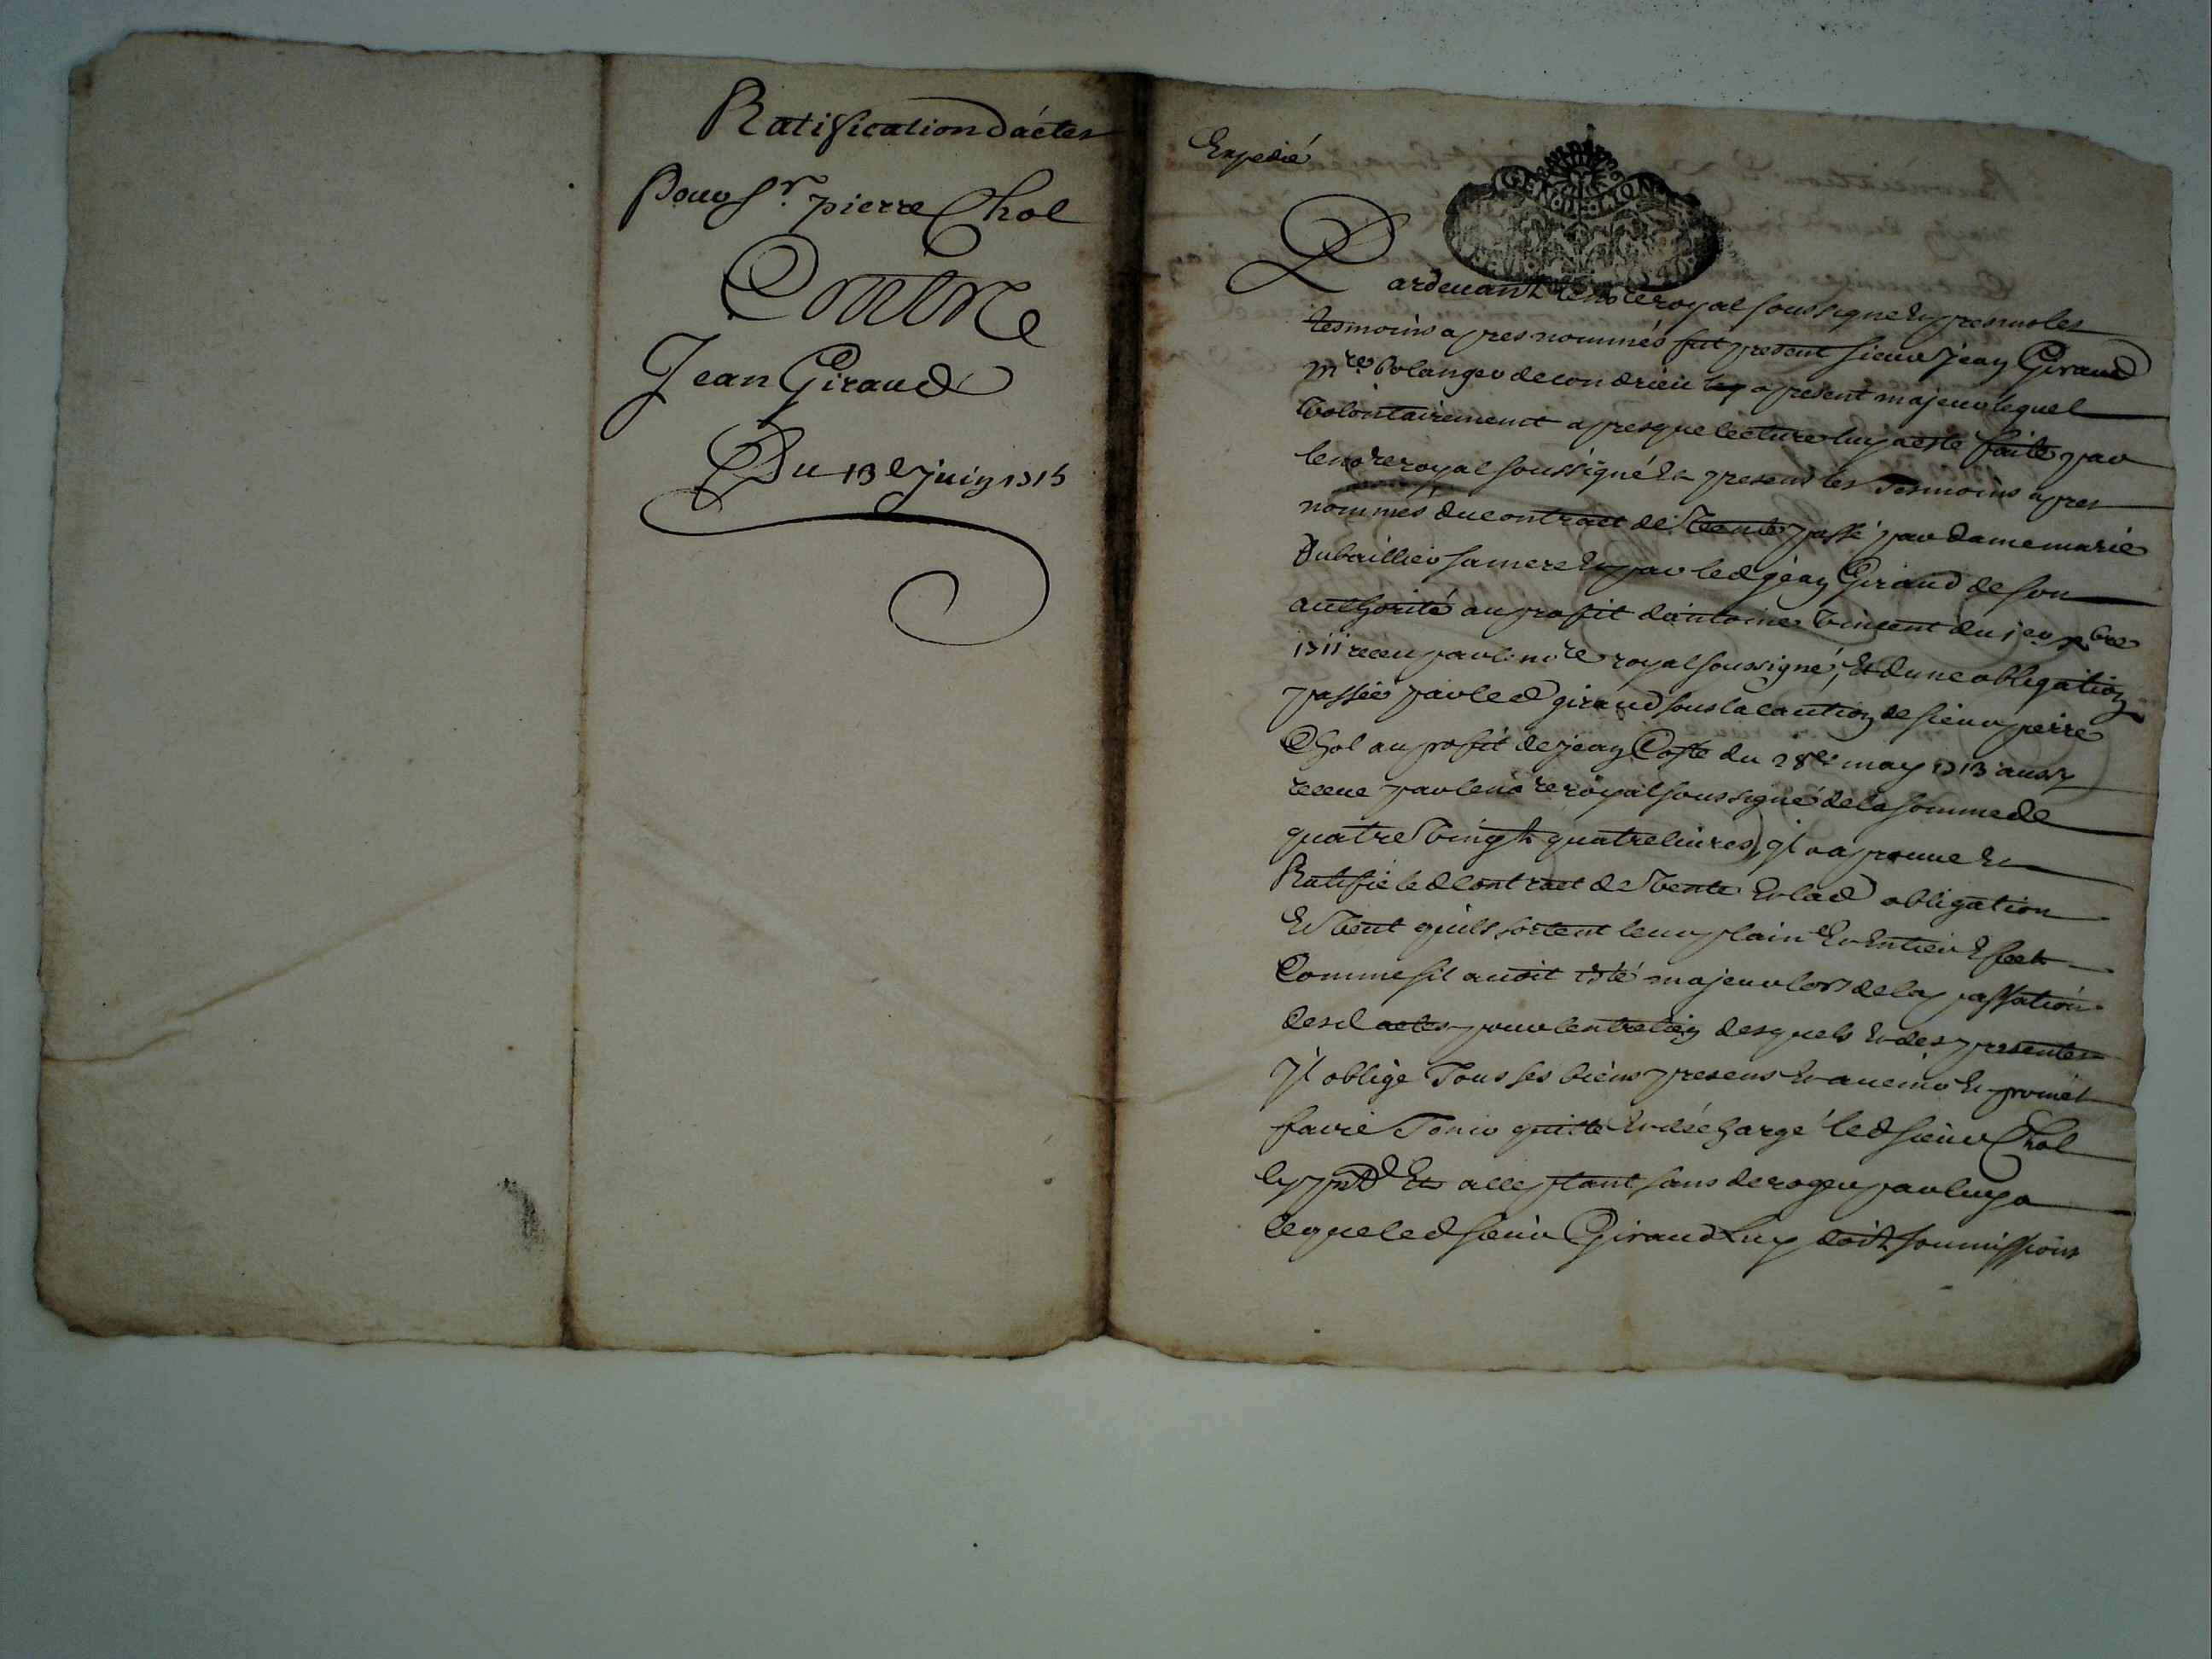 Ratification d'actes
Pour Sr. pierre Chol
Contre
Jean Giraud
Du 13e Juin 1715
Expedié
GENERALITE DE LION
Pardevant le nore royal soussigné et presens les
tesmoins apres nommés fut present sieur jean Giraud
mre bolanger de condrieu a present majeur lequel
volontairement apres que lecture luy a esté faite par
le nore royal soussigné et presens les Tesmoins apres
nommés du contract de Vente passé par dame marie
Dubaillier sa mere et par led jean Giraud de son
authorité au profit d'antoine Vincent du 1er xbre
1711 receu par le nore royal soussigné, et d'une obligation
passée par led giraud sous la caution de sieur pierre
Chol au profit de jean Coste du 28e may 1713 aussy
receue par le nore royal soussigné de la somme de
quatre Vingts quatre livres, jl a aprouvé et
Ratifié led Contract de Vente et lad obligation
et Veut quils sortent leur plain et entier effect
Comme sil avoit esté majeur lors de la passation
desd actes pour lentretien desquels et des presentes
jl oblige Tous ses biens presens et avenir et promet
faire Tenir quitte et déchargé led sieur Chol
icy pnt et acceptant sans deroger par luy a
ce que led sieur Giraud luy doit soumissions